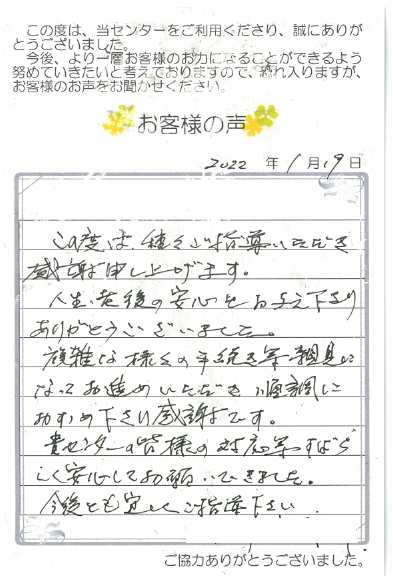 この度は、当センターをご利用くださり、誠にありが
とうございました。
今後、より一層お客様のお力になることができるよう
努めていきたいと考えておりますので、恐れ入りますが、
お客様のお声をお聞かせください。
お客様の声
2022 年 1月19日
この度は、種々ご指導いただき
感謝申し上げます。
人生、老後の安心をお与え下さり
ありがとうございました。
複雑な様々の手続き等親身に
なってお進めいただき順調に
おすすめ下さり感謝です。
貴センターの皆様の対応等すばら
しく安心してお願いできました。
今後とも宜しくご指導下さい
ご協力ありがとうございました。